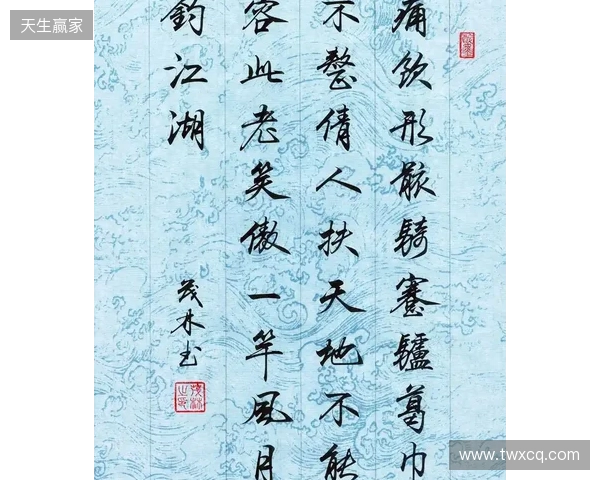 天生赢家
痛飲形骸騎蹇驢葛巾
不整倩人扶天地不能
容此老笑傲一竿風月
釣江湖
茂林书
www.twxcq.com